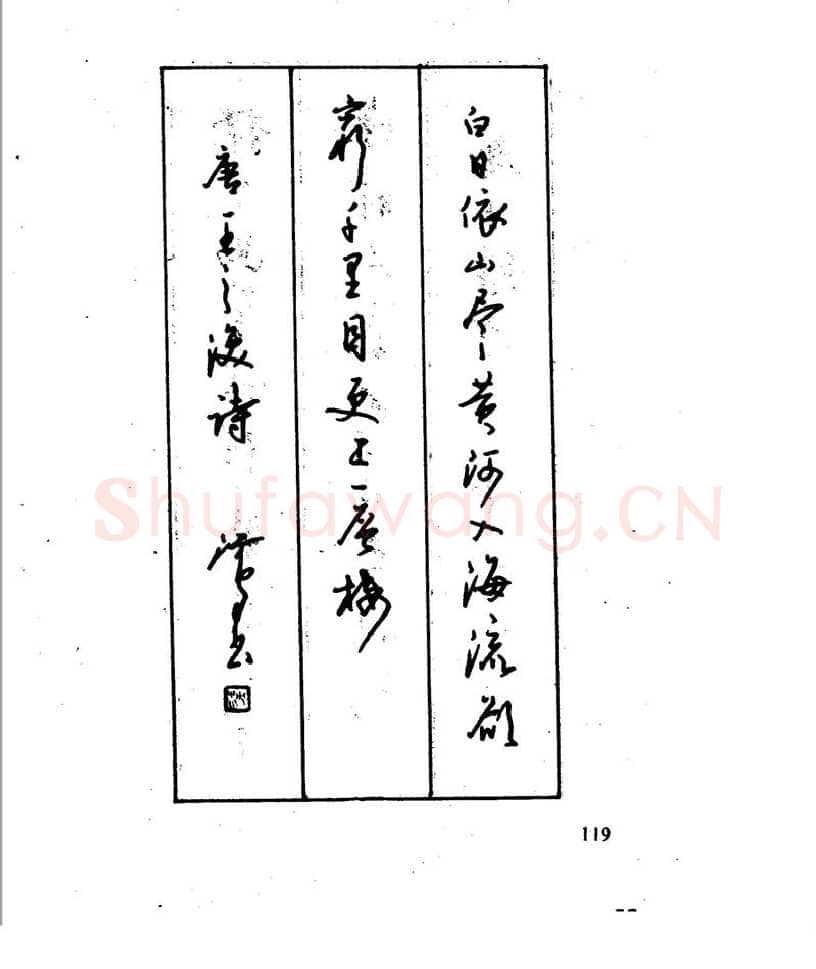 白日依山尽黄河入海流欲
穷千里目更上一层楼
唐王之涣诗 书
119
Shufawang.CN